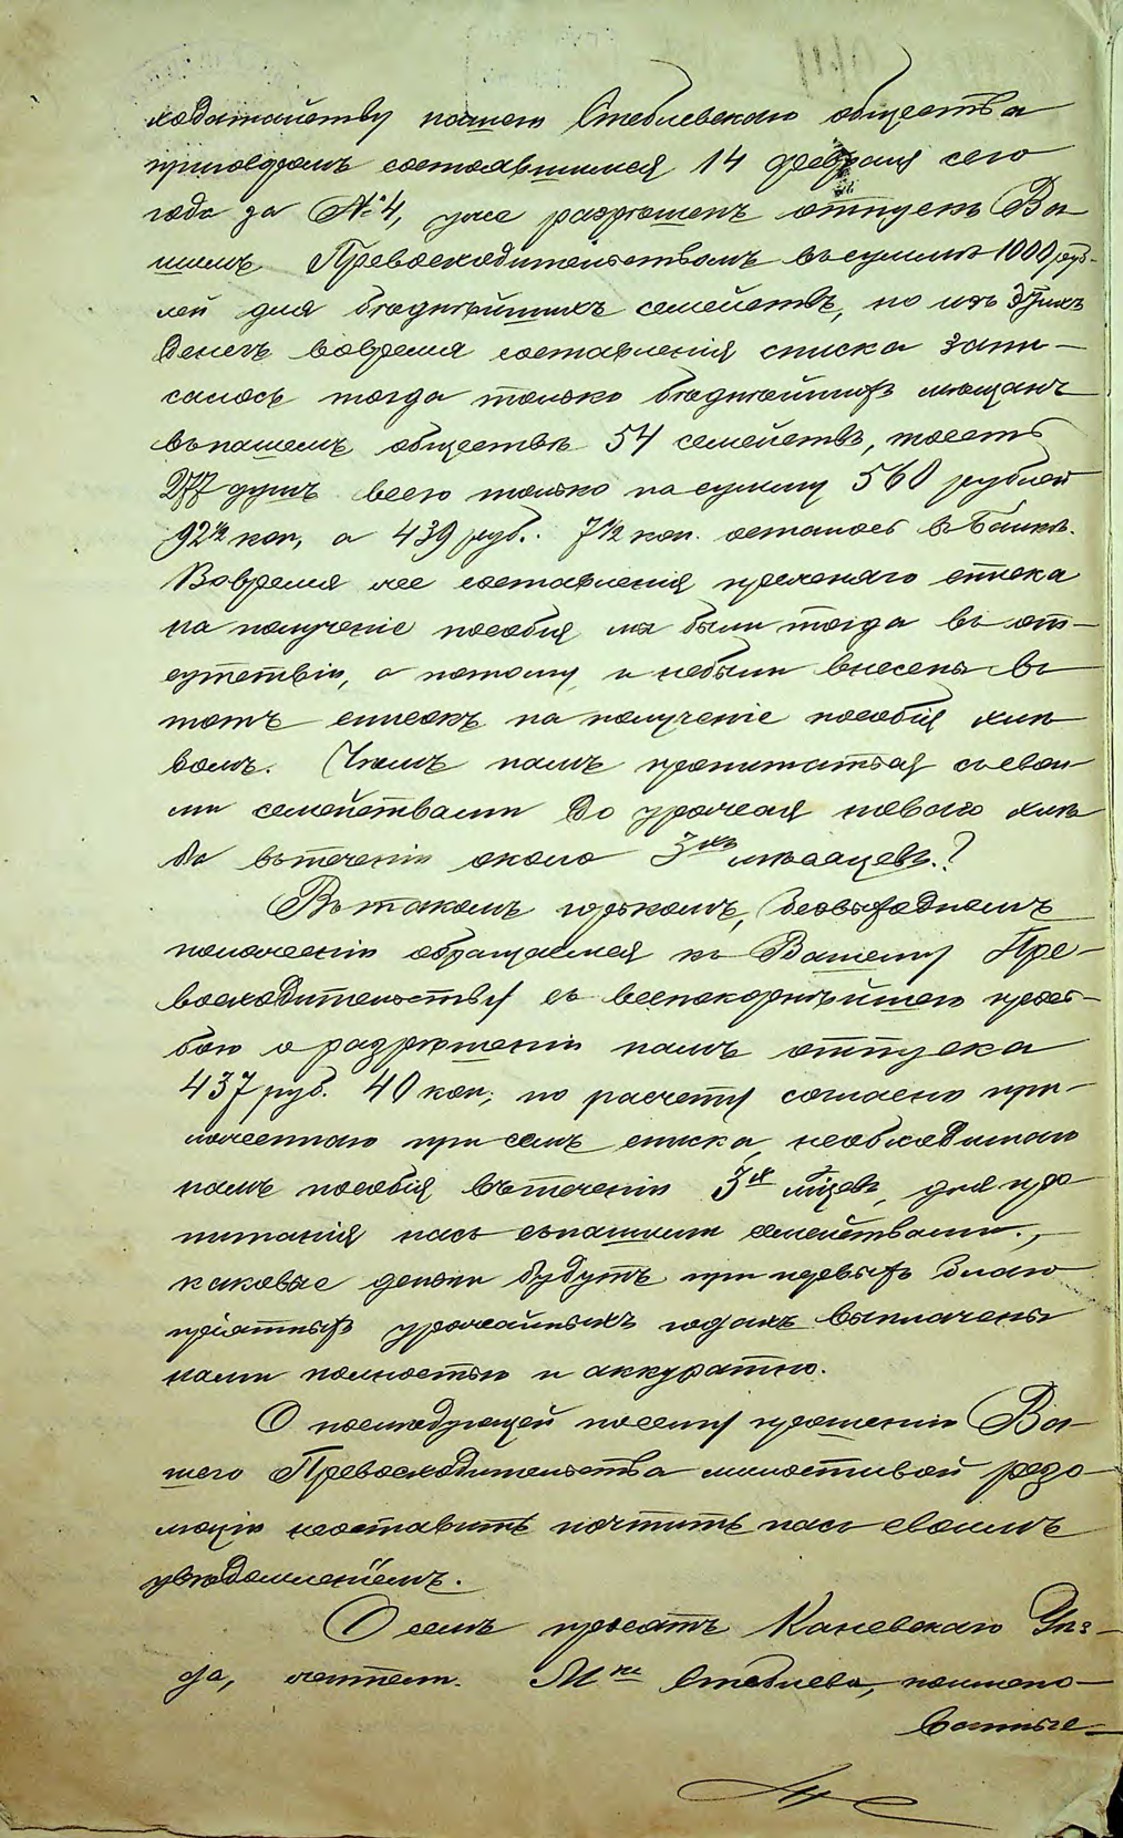 ходатайству нашего Стеблевскаго общества
приговромъ состоявшимся 14 февраля сего
года за № 4, уже разрѣшенъ отпускъ Ва-
шимъ Превосходительствомъ въ суммѣ 1000 руб-
лей для бѣднѣйшихъ семействъ, но изъ этихъ
денегъ вовремя составленія списка запи-
салось тогда только бѣднѣйшихъ мѣщанъ
въ нашемъ обществѣ 54 семействъ, тоесть
277 душъ всего только на сумму 560 рублей
92½ коп, а 439 руб. 7½ коп. осталось въ Банкѣ.
Вовремя же составленія прежняго списка
на полученіе пособія мы были тогда въ от-
сутствіи, а потому и небыли внесены въ
тотъ списокъ на полученіе пособія хлѣ-
бомъ. Чѣмъ намъ пропитаться съ свои-
ми семействами до урожая новаго хлѣ-
ба въ теченіи около 3хъ мѣсяцевъ.?
Въ такомъ горькомъ, безвыходномъ
положеніи обращаемся къ Вашему Пре-
восходительству съ всепокорнѣйшею прось-
бою о разрѣшеніи намъ отпуска
437 руб. 40 коп, по расчету согласно при-
ложеннаго при семъ списка, необходимаго
намъ пособія въ теченіи 3х мѣцевъ, для про
питанія насъ съ нашими семействами.,
каковые деньги будутъ при первыхъ благо
пріятныхъ урожайныхъ годахъ выплачены
нами полностью и аккуратно.
О послѣдующей по сему прошенію Ва-
шего Превосходительства милостивой резо-
люціи неоставить почтить насъ своимъ
увѣдомленіемъ.
О семъ просятъ Каневскаго Уѣз-
да, жители. Мка Стеблева, поимено-
ванные